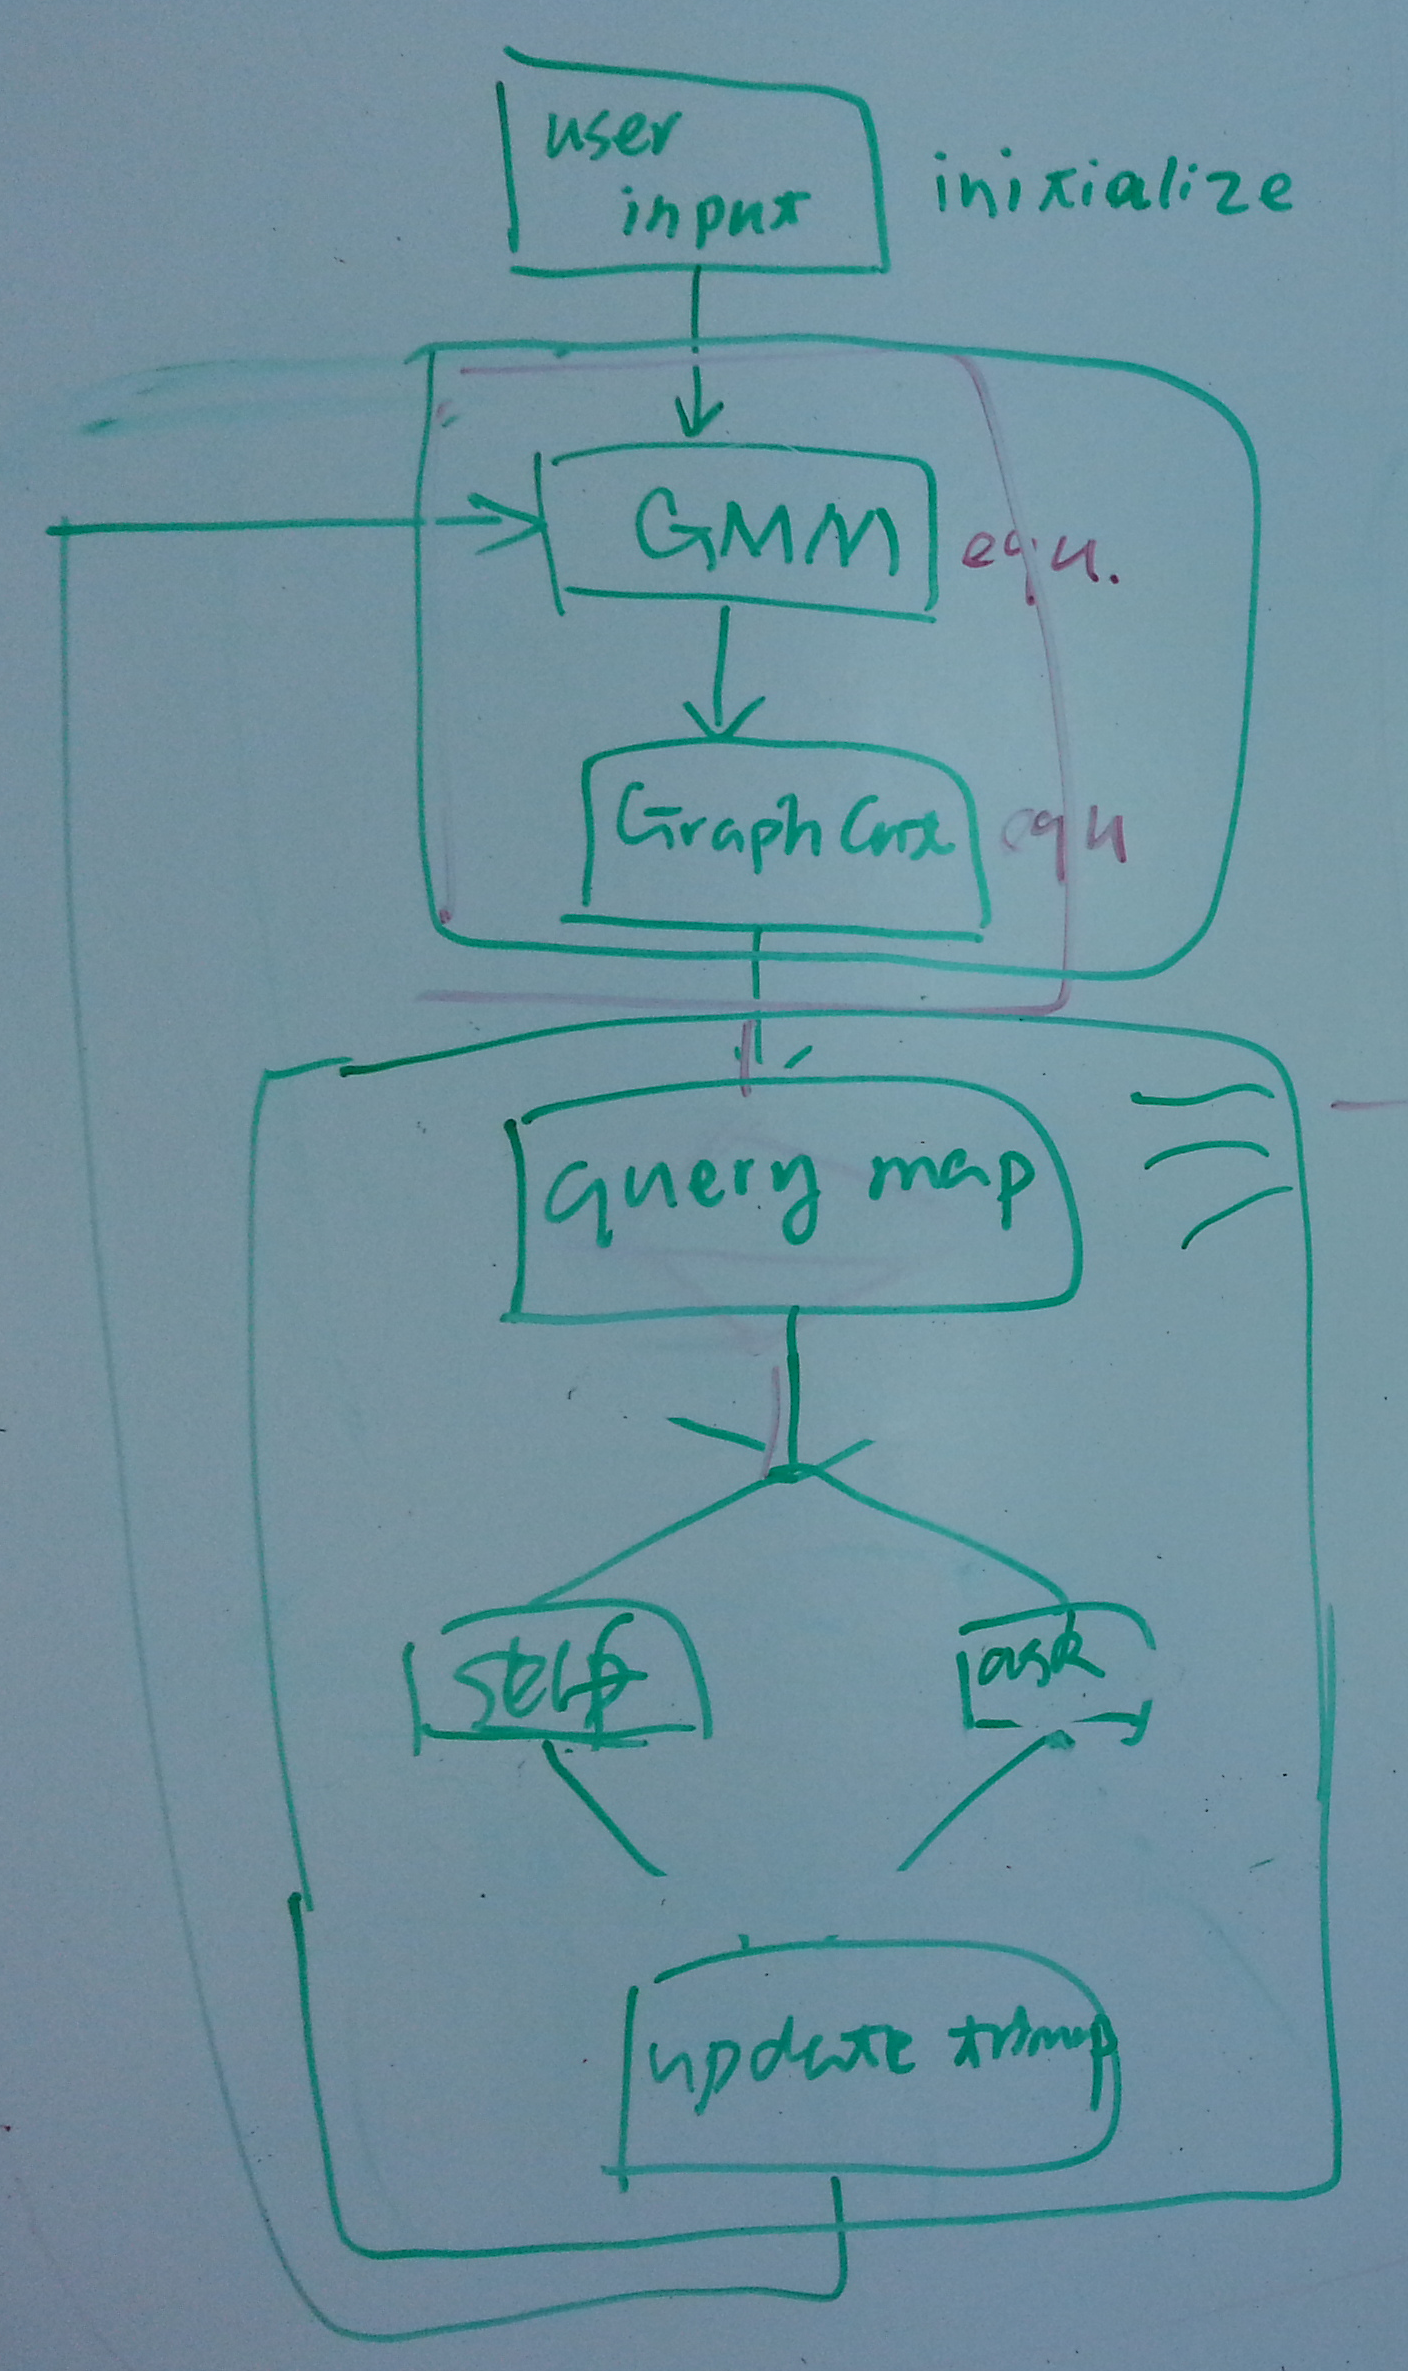 user
input
initialize
GMM
equ.
Graph Cut
equ
query map
self
ask
update trimap